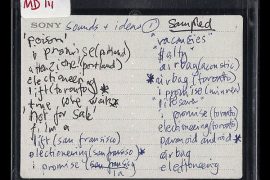 MD 111
SONY sounds + ideas ① Sampled
"poison"
i promise (portland)
airbag (portland)
electioneering
lift (toronto)
true love waits
not for sale
f. in a
lift (san fransisco)
electioneering (san fransisco)
i promise (san fransis
la
"vacancies"
airbag (acoustic)
airbag (toronto)
i promise
"lifesaver"
i promise (toronto)
electioneering (toronto)
paranoid android
airbag
electioneering